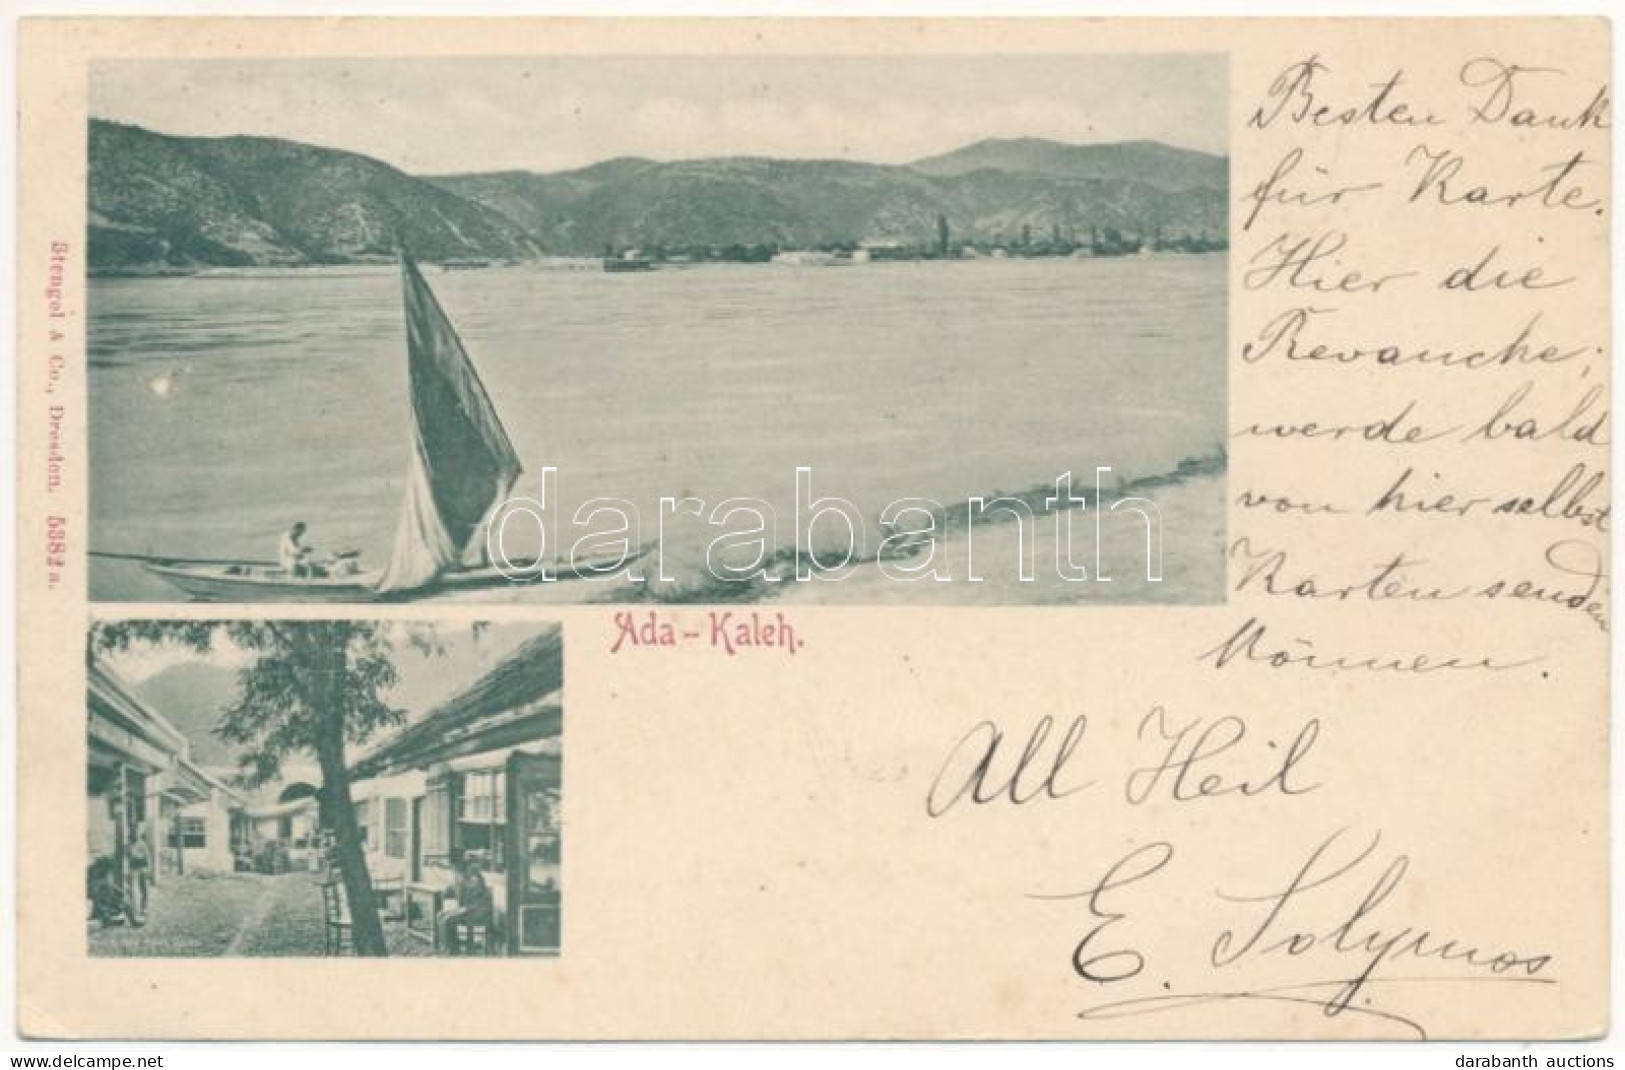 Besten Dank
für Karte.
Hier die
Revanche;
werde bald
von hier selbst
Karten senden
können.
All Heil
E. Solymos
Ada-Kaleh.
Stengel & Co., Dresden. 5384 a.
darabanth
delcampe.net
darabanth auctions